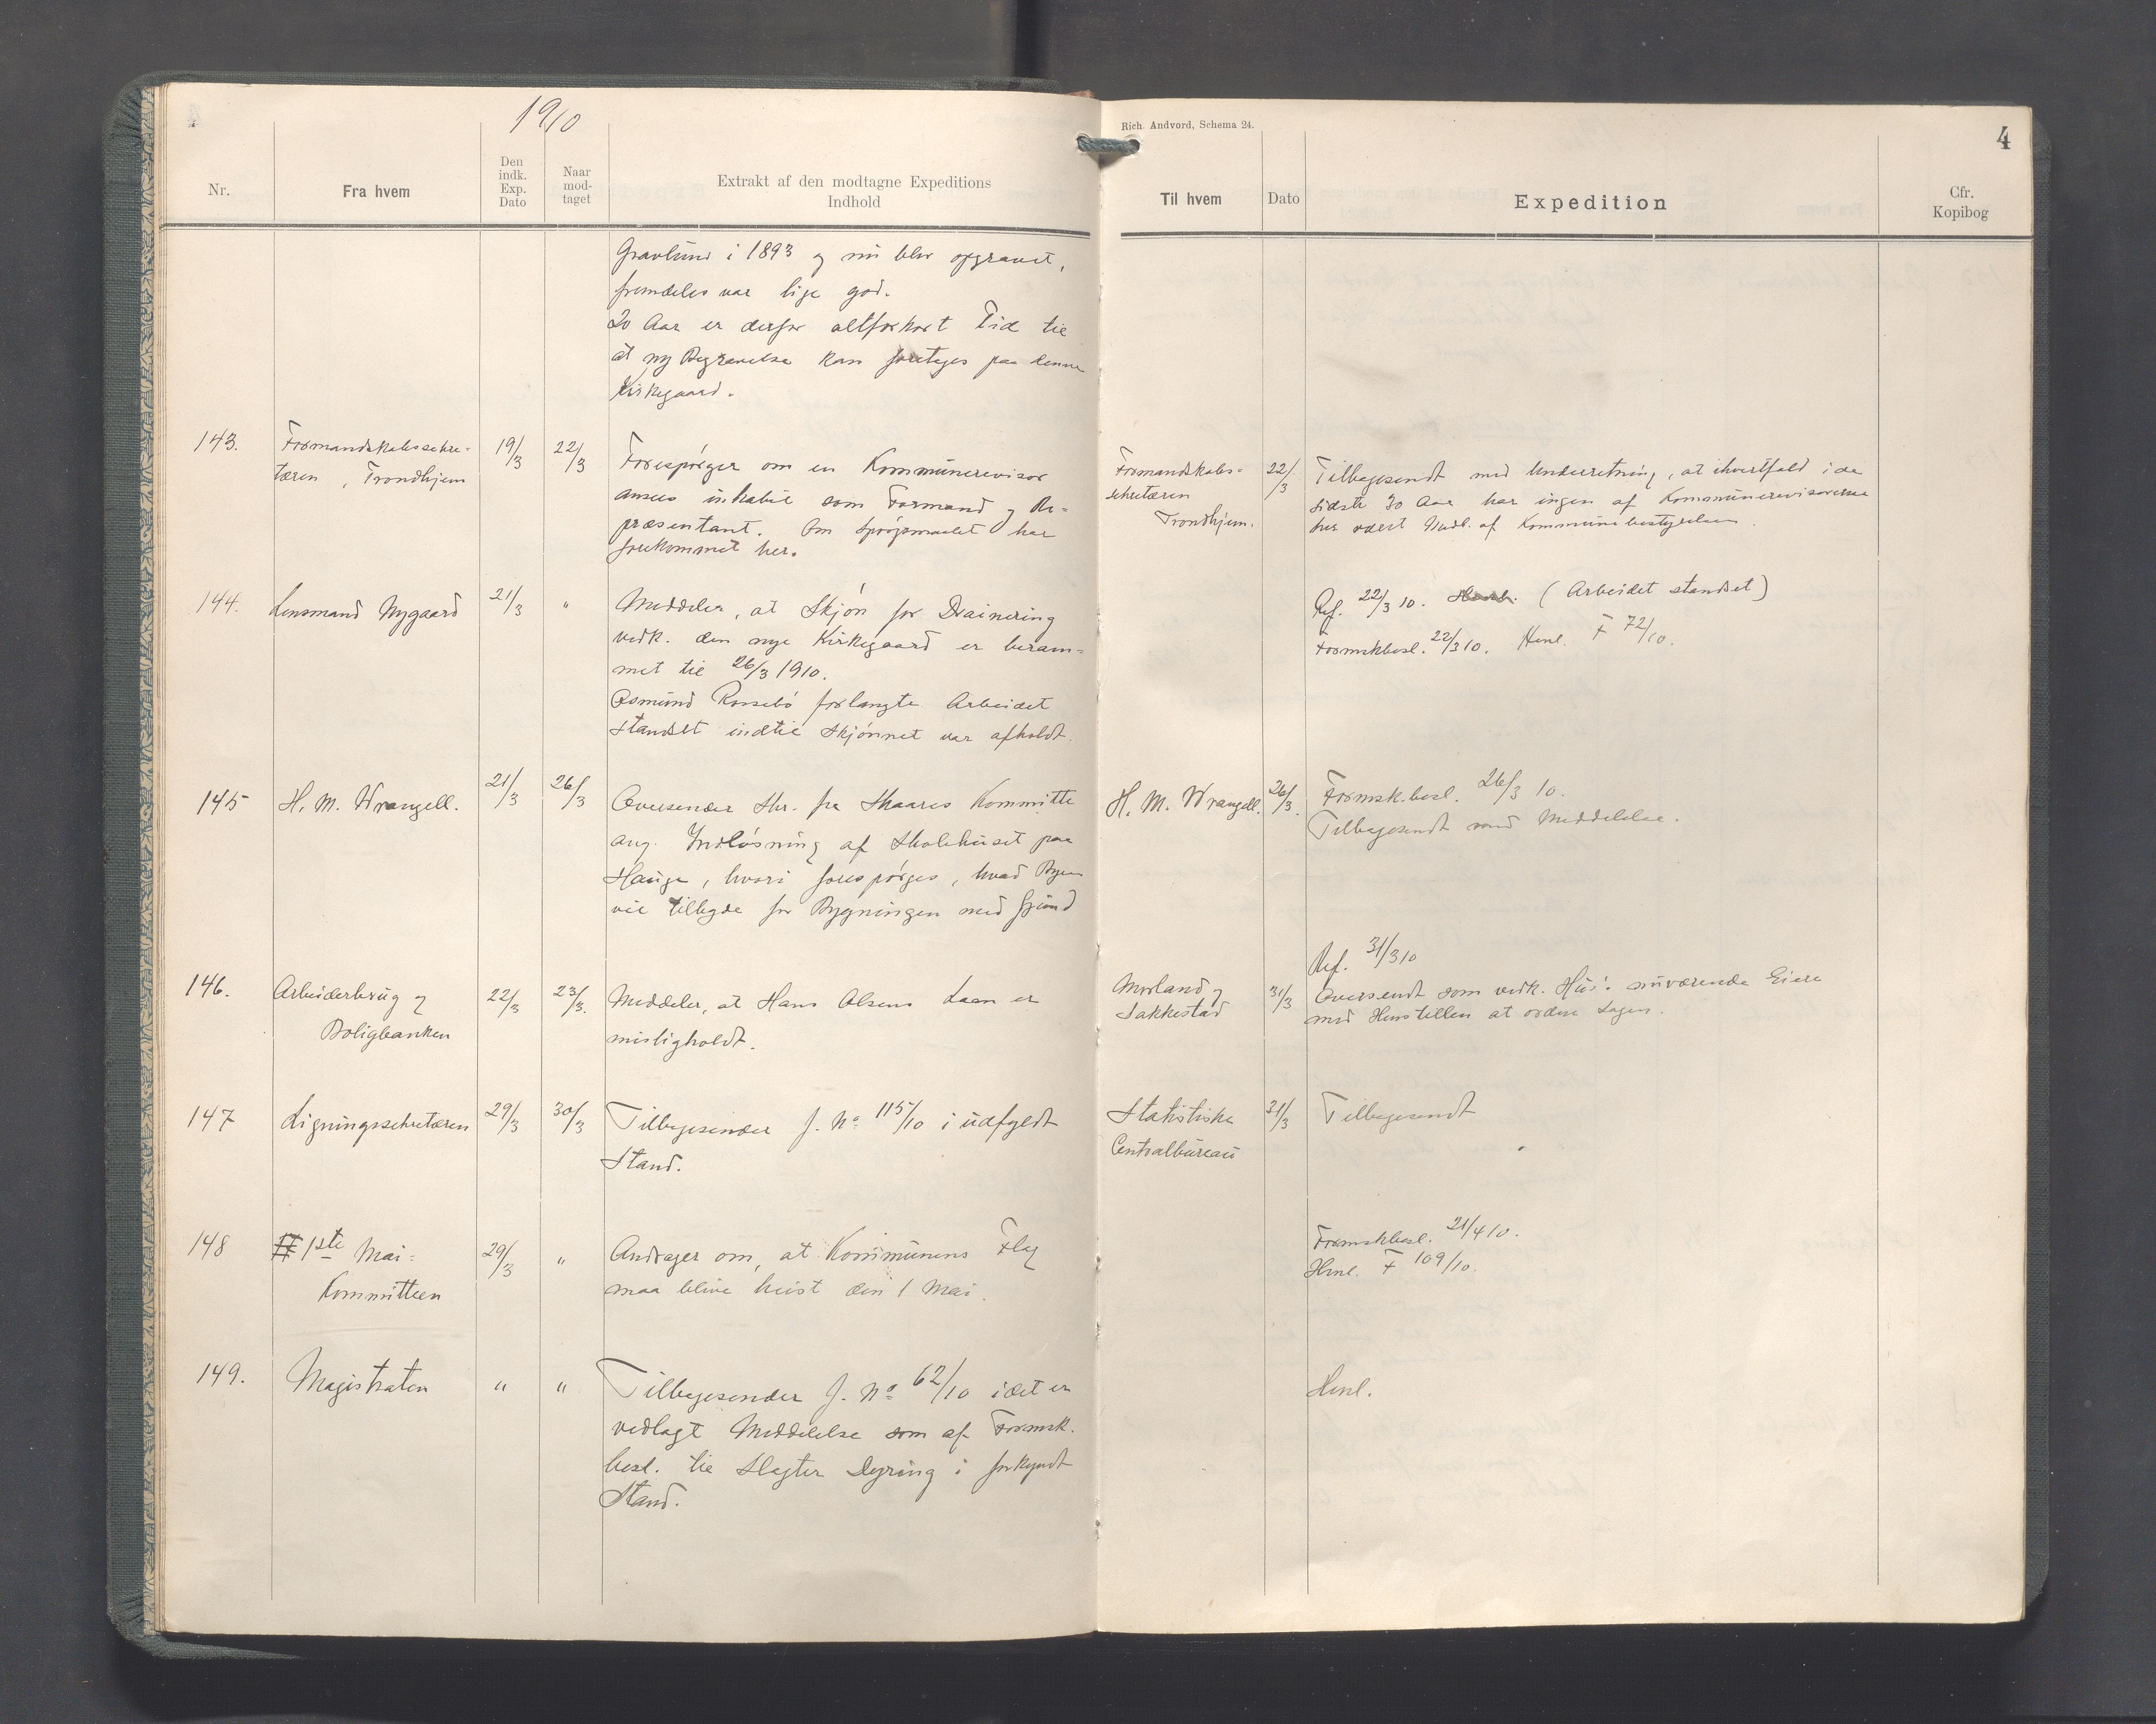 1910
Nr.
Fra hvem
Den
indk.
Exp.
Dato
Naar
mod-
taget
Extrakt af den modtagne Expeditions
Indhold
Gravlund i 1893 og nu blev opgravet,
fremdeles var lige god.
20 Aar er derfor altfor kort Tid til
at ny Begravelse kan foretages paa denne
Kirkegaard.
143.
Formandskabssekre-
tæren, Trondhjem
19/3
22/3
Forespørger om en Kommunerevisor
ansees inhabil som Formand og Re-
præsentant. Om Spørgsmaalet har
forekommet her.
144.
Lensmand Nygaard
21/3
"
Meddeler, at Skjøn for Drainering
vedk. den nye Kirkegaard er beram-
met til 26/3 1910.
Osmund Rossebø forlangte Arbeidet
standset indtil Skjønnet var afholdt.
145
H. M. Wrangell.
21/3
26/3
Oversender Skr. fra Skaares Kommitte
ang. Indløsning af Skolehuset paa
Hauge, hvori forespørges, hvad Byen
vil tilbyde for Bygningen med Grund
146.
Arbeiderbrug og
Boligbanken
22/3
23/3.
Meddeler, at Hans Olsens Laan er
misligholdt.
147
Ligningssekretæren
29/3
30/3
Tilbagesender J. No 115/10 i udfyldt
Stand.
148
1ste Mai-
Kommitteen
29/3
"
Andrager om, at Kommunens Flag
maa blive heist den 1 Mai.
149.
Magistraten
"
"
Tilbagesender J. No 62/10 idet er
vedlagt Meddelelse som af Formsk.
besl. til Slagter Dyring i forkyndt
Stand.
Rich. Andvord, Schema 24.
4
Til hvem
Dato
Expedition
Cfr.
Kopibog
Formandskabs-
sekretæren
Trondhjem.
22/3
Tilbagesendt med Underretning, at ihvertfald i de
sidste 30 Aar har ingen af Kommunerevisorerne
her været Medl. af Kommunebestyrelsen.
Ref. 22/3 10. Henl. (Arbeidet standset)
Formskbesl. 22/3 10. Henl. F 72/10.
H. M. Wrangell.
26/3.
Formsk.besl. 26/3 10.
Tilbagesendt med Meddelelse.
Ref. 31/3 10
Morland og
Sakkestad
31/3
Oversendt som vedk. Hus's nuværende Eiere
med Henstillen at ordne Sagen.
Statistiske
Centralbureau
31/3
Tilbagesendt
Formskbesl. 21/4 10.
Henl. F 109/10.
Henl.